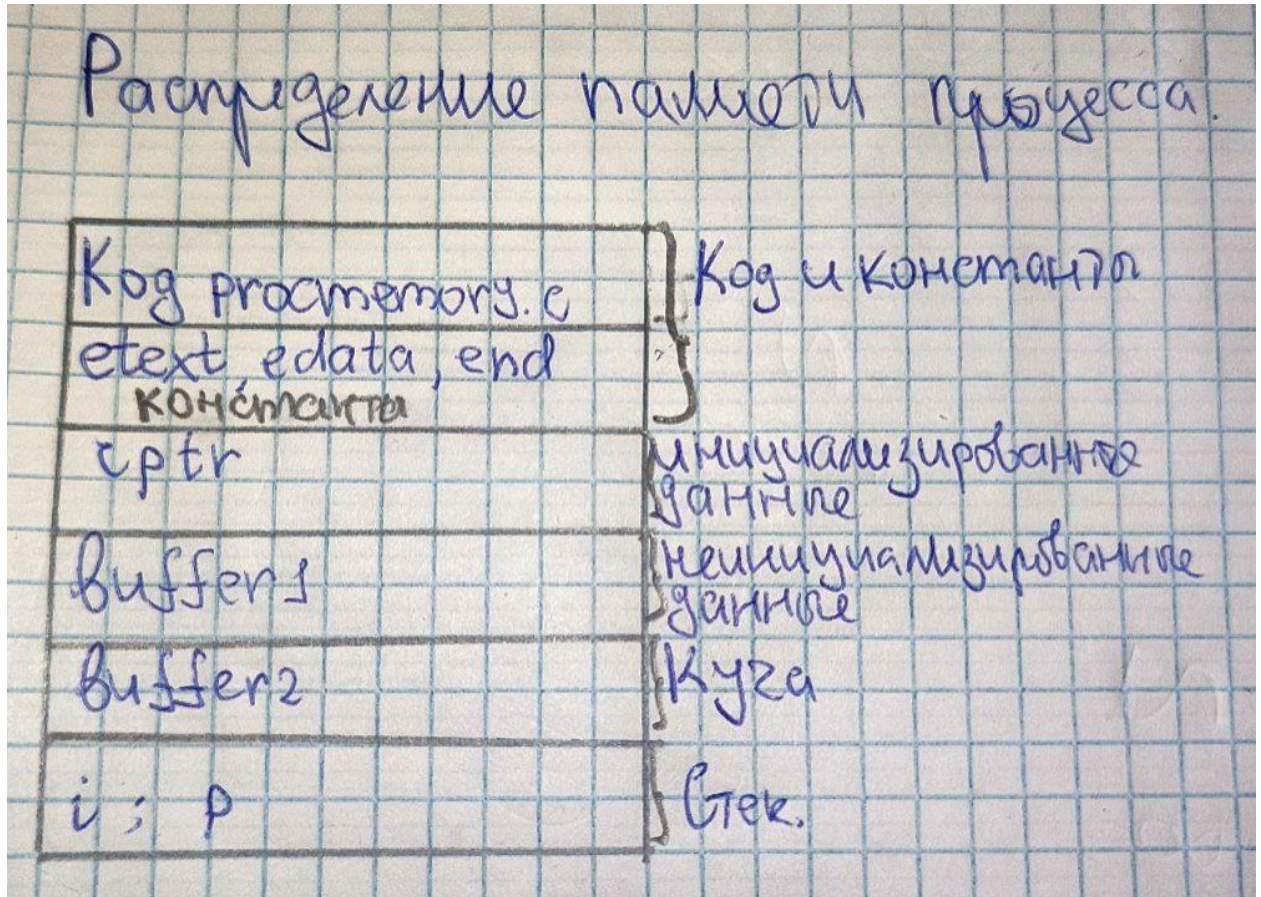 Распределение памяти процесса.
Код procmemory.c
Код и константы
etext, edata, end
константы
cptr
инициализированные
данные
buffer1
неинициализированные
данные
buffer2
Куча
i ; p
Стек.